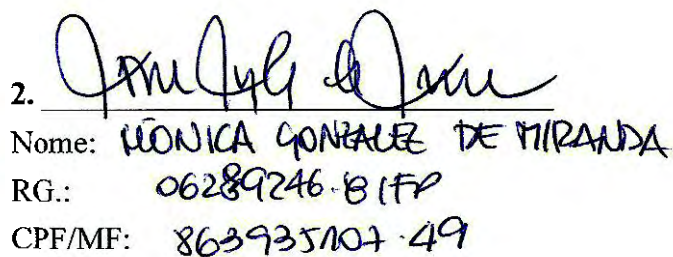 2.
Nome: MÔNICA GONZALEZ DE MIRANDA
RG.: 06289246-8 IFP
CPF/MF: 863935107-49